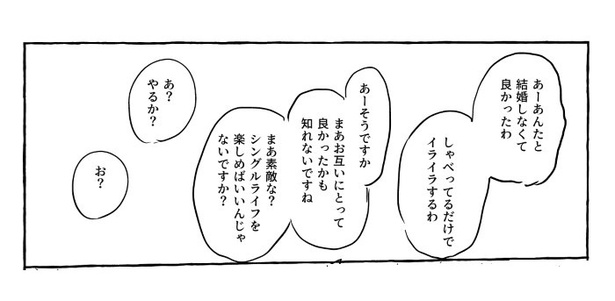 あーあんたと
結婚しなくて
良かったわ
しゃべってるだけで
イライラするわ
あーそうですか
まあお互いにとって
良かったかも
知れないですね
まあ素敵な？
シングルライフを
楽しめばいいんじゃ
ないですか？
あ？
やるか？
お？